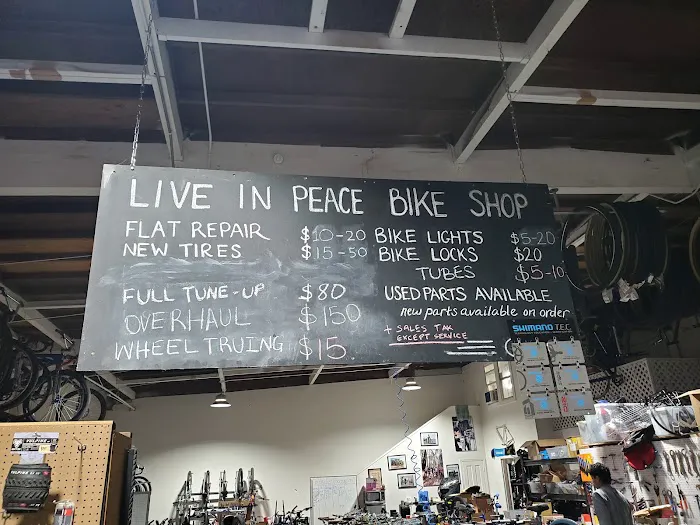 LIVE IN PEACE BIKE SHOP
FLAT REPAIR $10-20
NEW TIRES $15-50
FULL TUNE-UP $80
OVERHAUL $150
WHEEL TRUING $15.
BIKE LIGHTS $5-20
BIKE LOCKS $20
TUBES $5-10
USED PARTS AVAILABLE
new parts available on order
+ SALES TAX
EXCEPT SERVICE
SHIMANO TEC